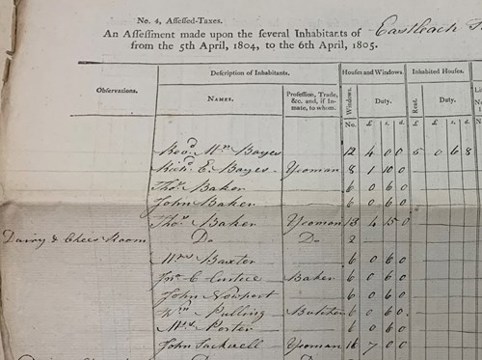 No. 4, Assessed-Taxes.
An Assessment made upon the several Inhabitants of Eastleach
from the 5th April, 1804, to the 6th April, 1805.
Observations.
Description of Inhabitants.
Names.
Profession, Trade, &c. and, if Inmate, to whom.
Houses and Windows.
Windows. Duty.
No. £ s. d.
Inhabited Houses.
Rent. Duty.
£. £ s. d.
Revd. Mr. Bayes 12 4 0 0 5 0 6 8
Richd. E. Bayes Yeoman 8 1 10 0
Thos. Baker 6 0 6 0
John Baker 6 0 6 0
Thos. Baker Yeoman 13 4 15 0
Dairy & Chees Room Do Do 2
Mrs. Baxter 6 0 6 0
Baker 6 0 6 0
John Newport 6 0 6 0
Wm. Pulling Butcher 6 0 6 0
Porter 6 0 6 0
John Yeoman 16 7 0 0